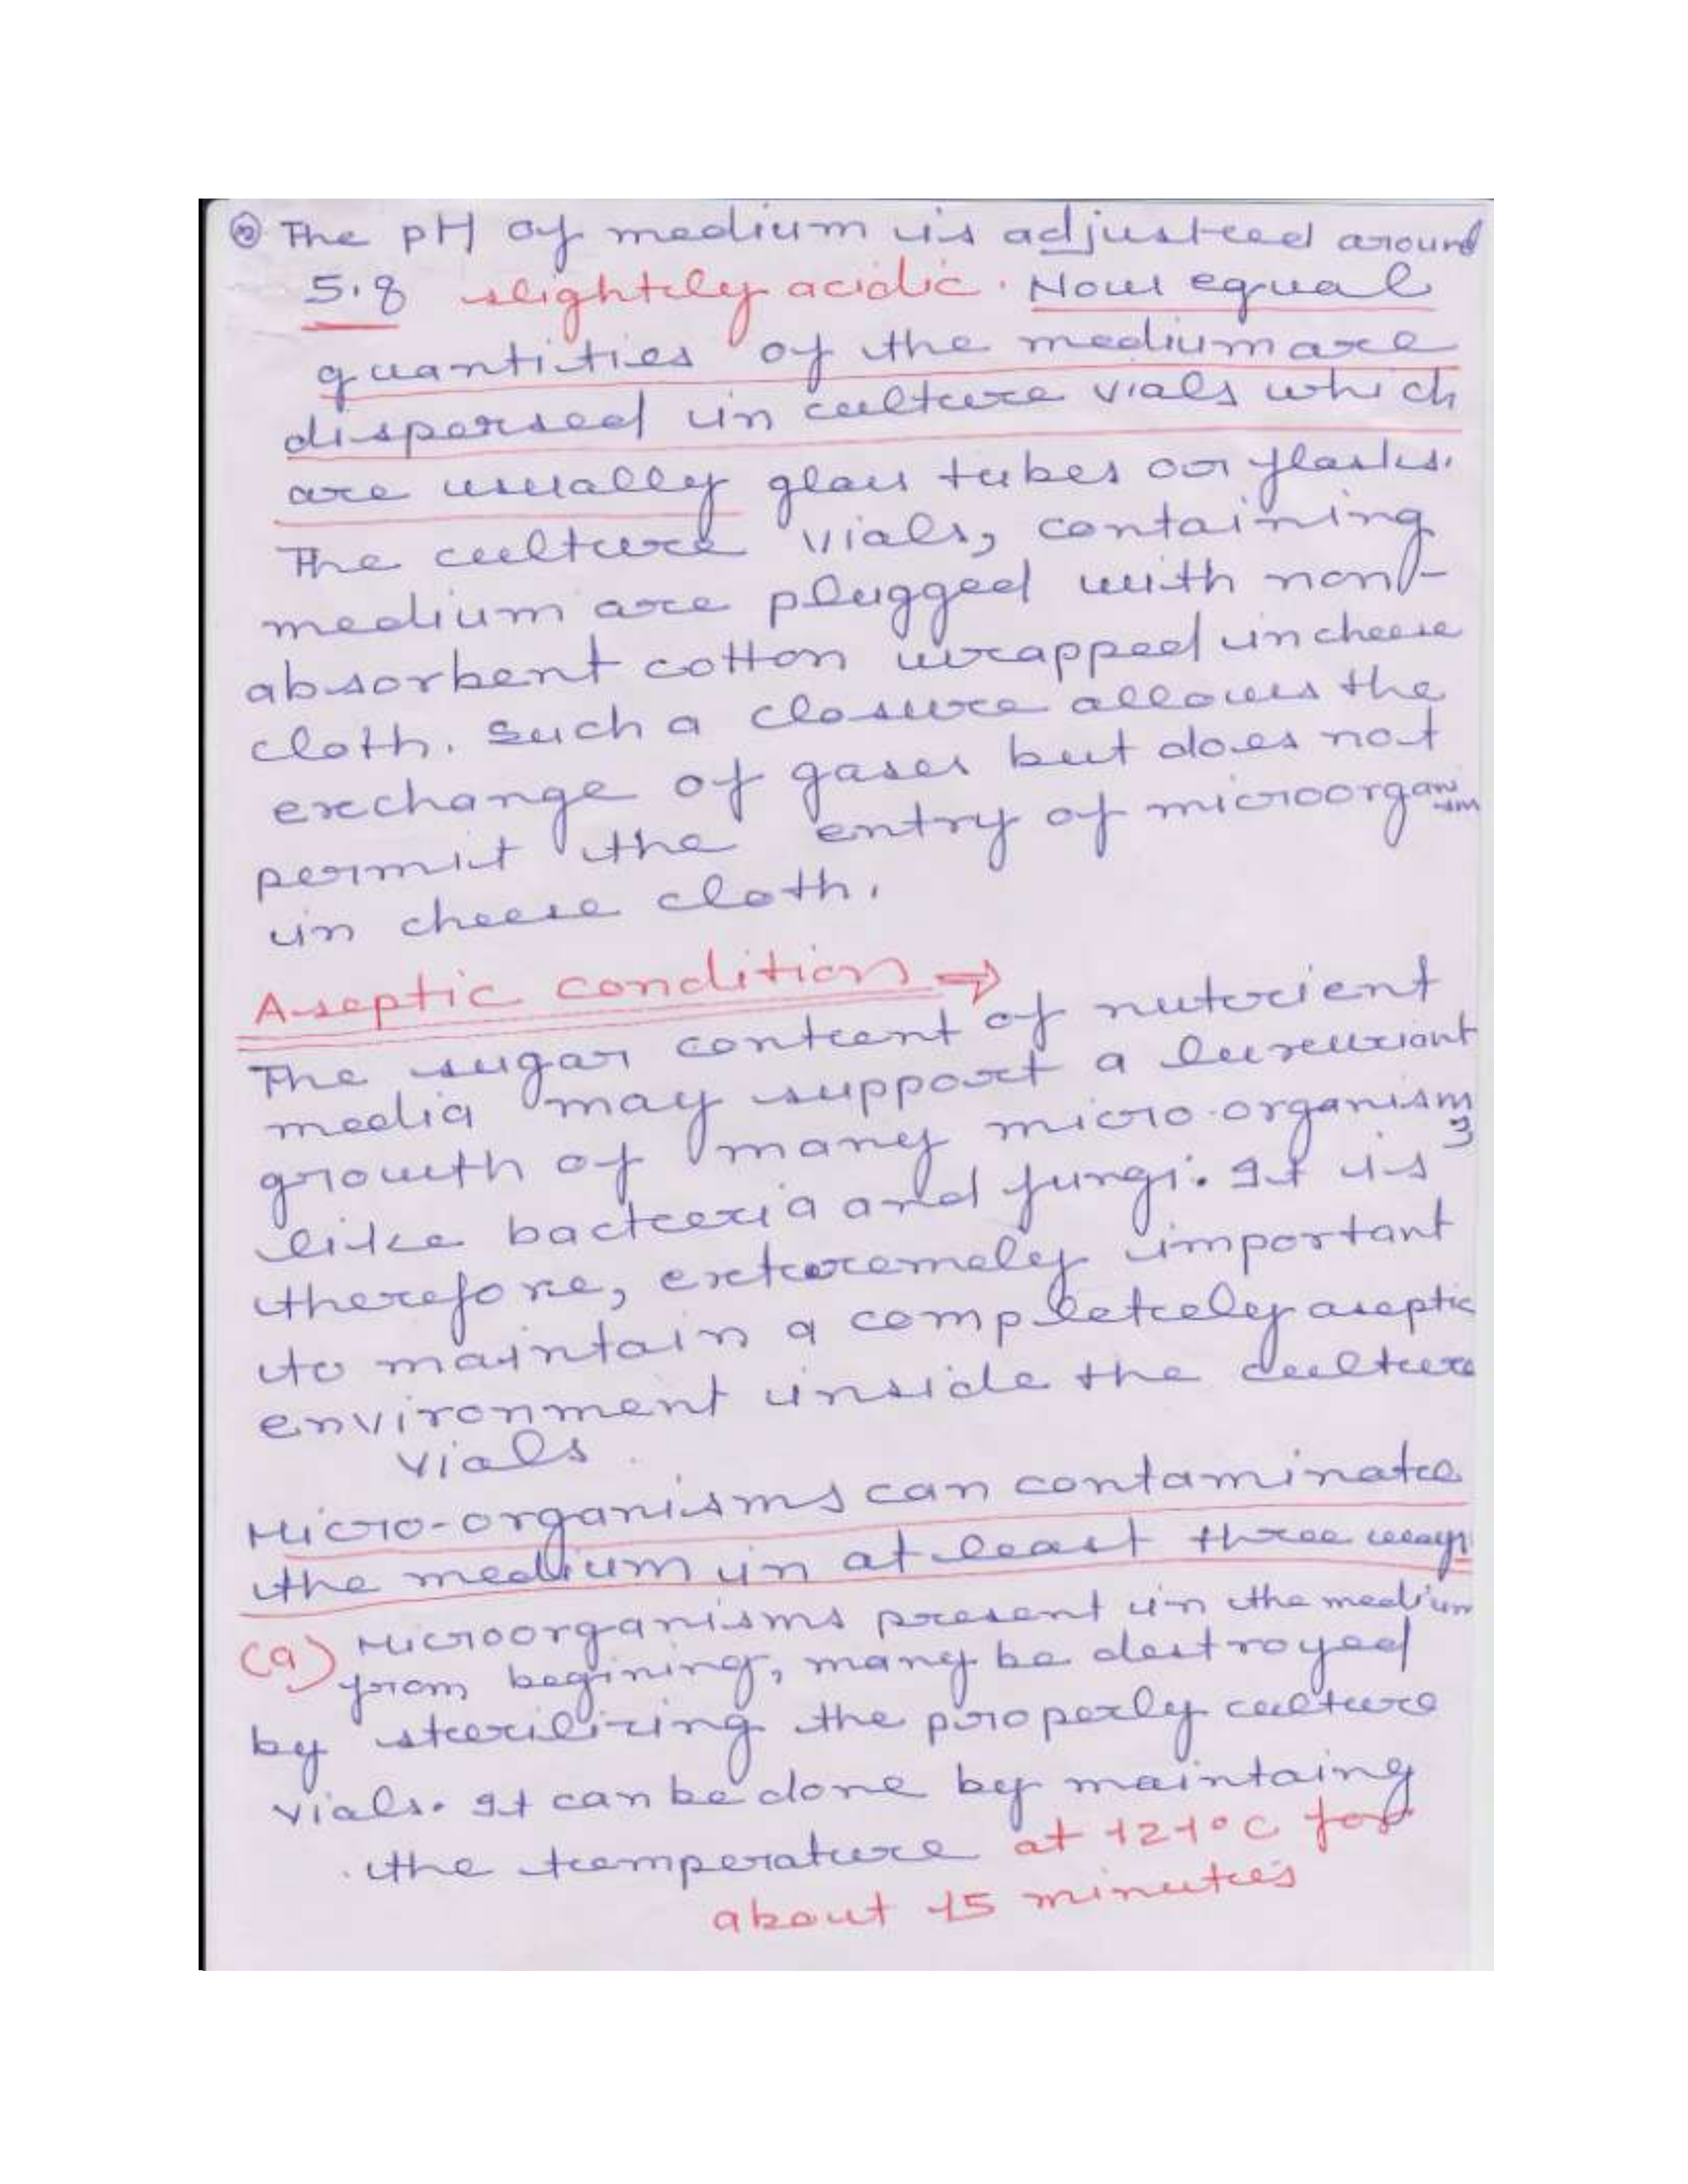 The pH of medium is adjusted around
5.8 slightly acidic. Now equal
quantities of the medium are
dispersed in culture vials which
are usually glass tubes or flasks.
The culture vials, containing
medium are plugged with non-
absorbent cotton wrapped in cheese
cloth. Such a closure allows the
exchange of gases but does not
permit the entry of microorganism
in cheese cloth.
Aseptic condition →
The sugar content of nutrient
media may support a luxuriant
growth of many micro-organism
like bacteria and fungi. It is
therefore, extremely important
to maintain a completely aseptic
environment inside the culture
vials.
Micro-organisms can contaminate
the medium in at least three ways
(a) Microorganisms present in the medium
from begining, many be destroyed
by sterilizing the properly culture
vials. It can be done by maintaing
the temperature at 121°C for
about 15 minutes